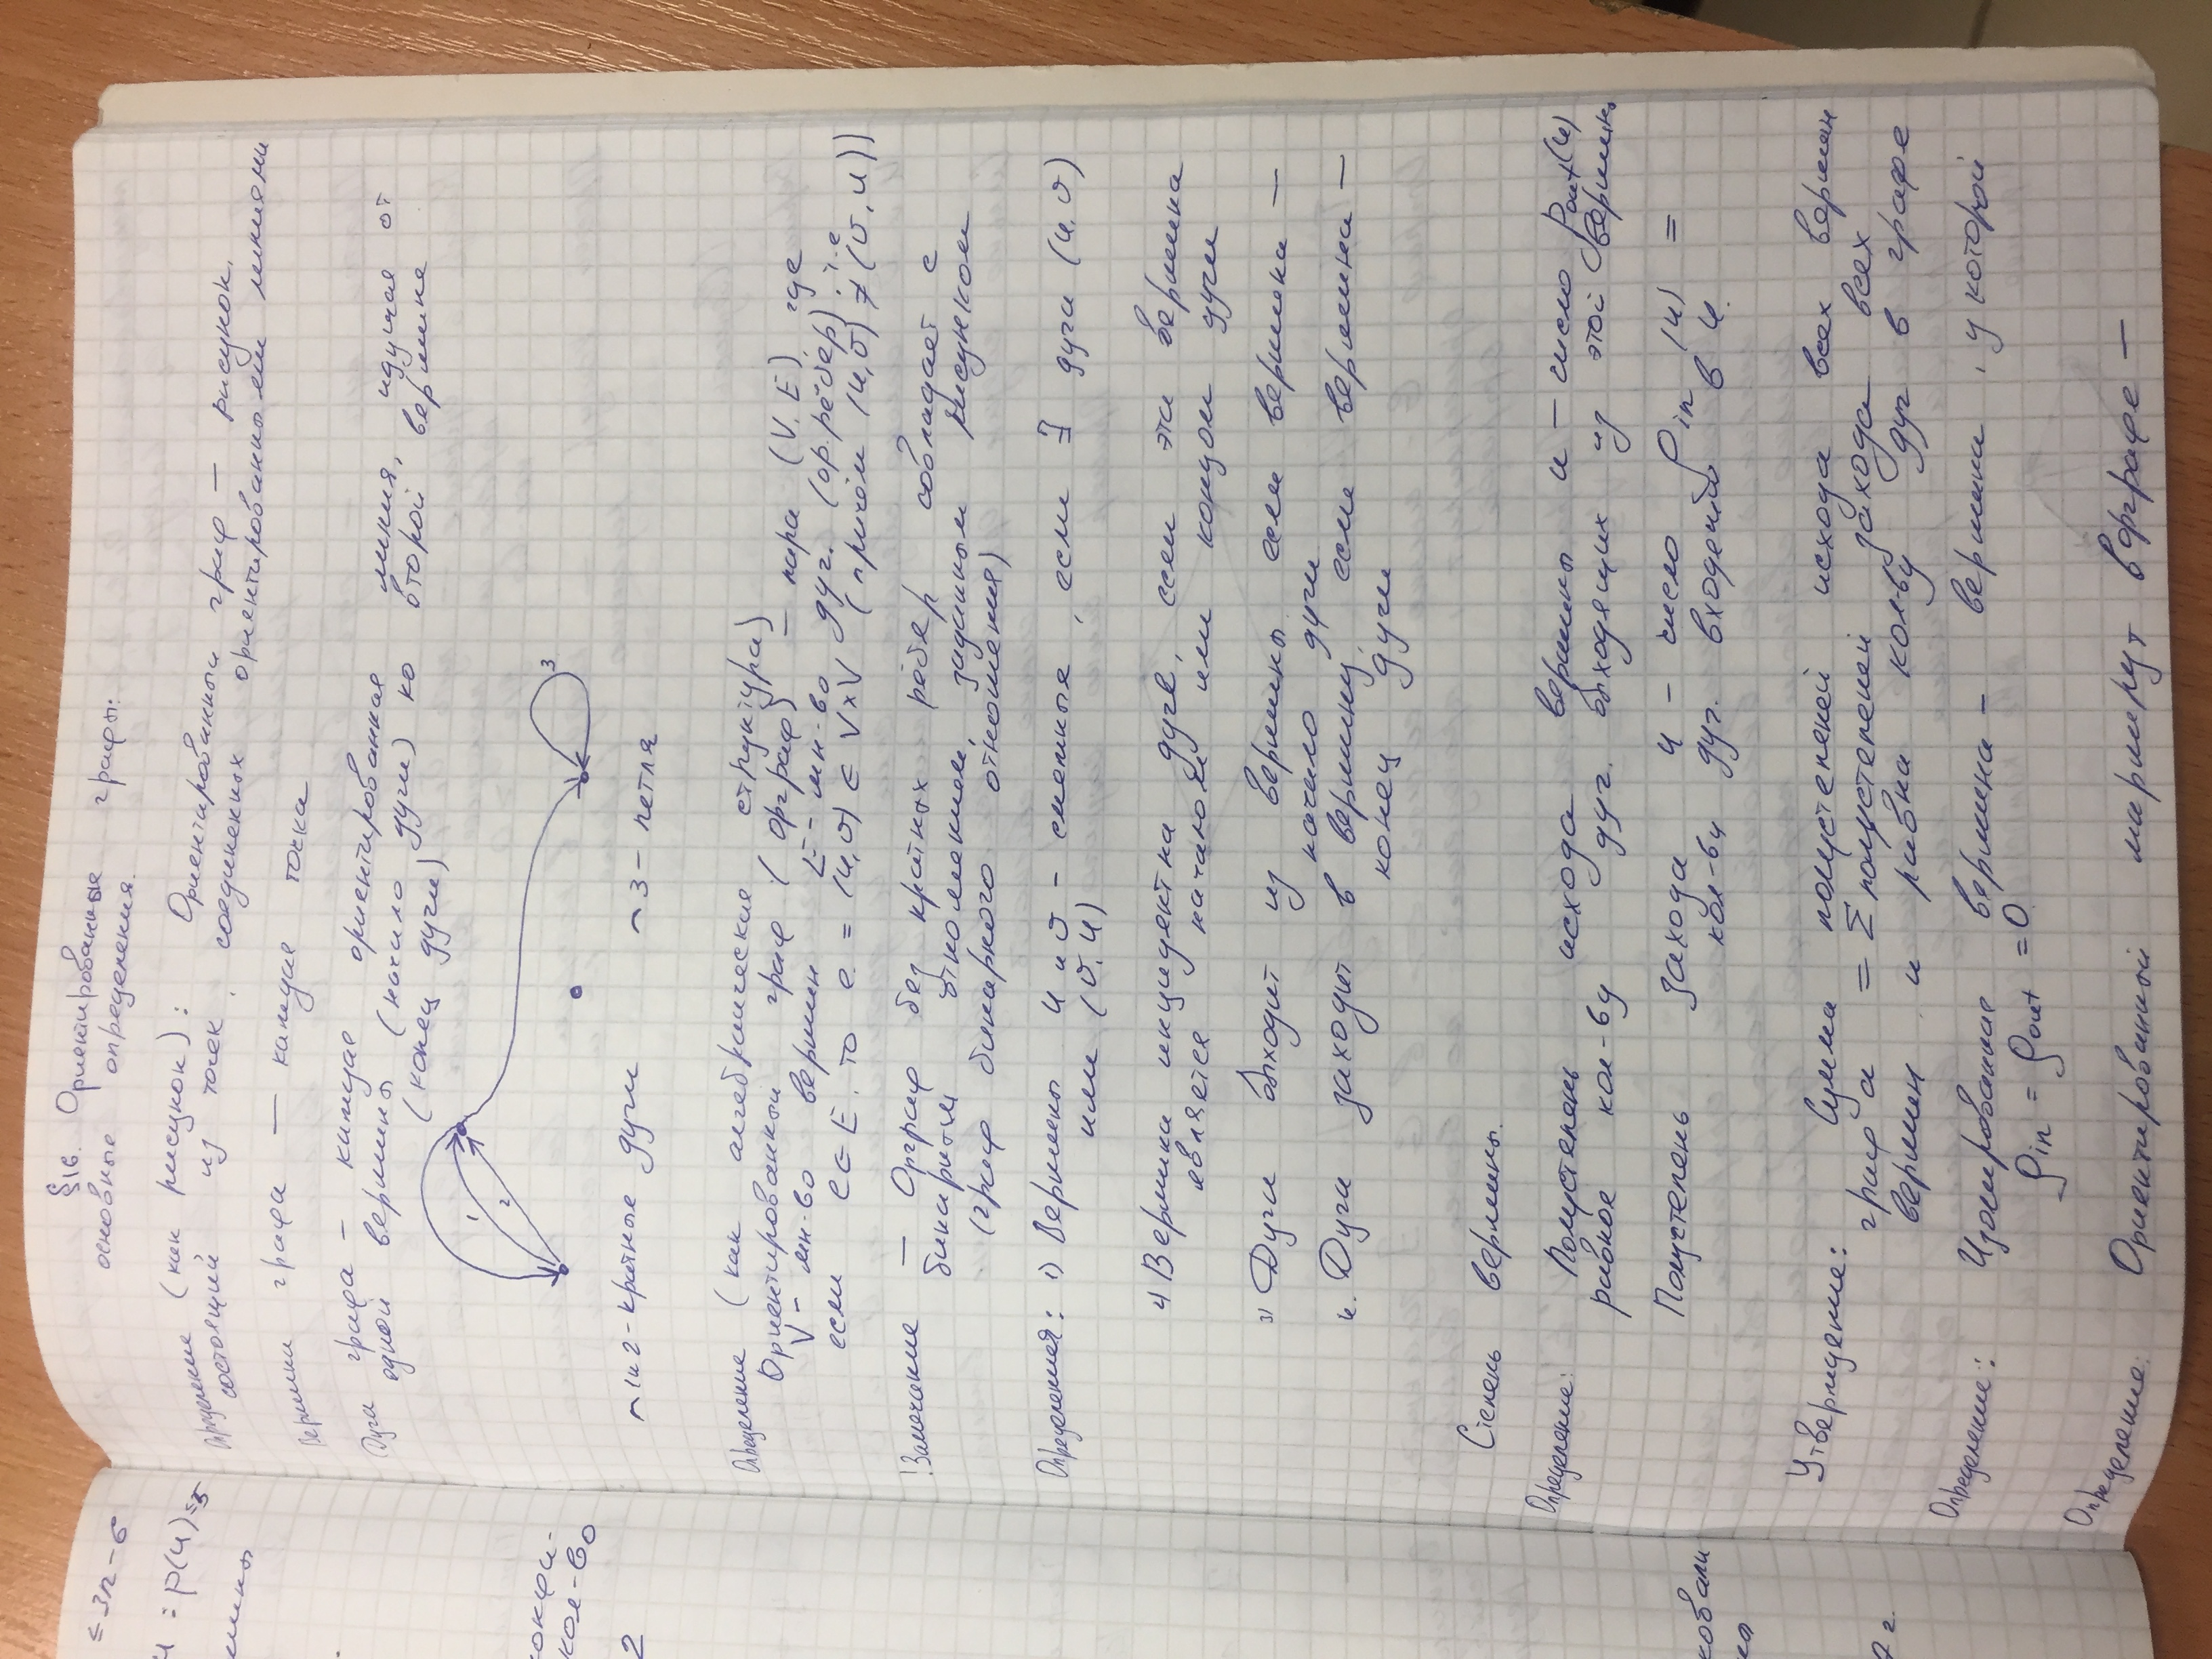 ≤3n-6
: p(u)≤5
кол-во
2
§16. Ориентированные графы:
основные определения.
Определение (как рисунок): Ориентированный граф — рисунок,
состоящий из точек, соединенных ориентированными линиями
Вершина графа — каждая точка
Дуга графа — каждая ориентированная линия, идущая от
одной вершины (начало дуги) ко второй вершине
(конец дуги)
1
2
3
1 и 2 - кратные дуги
3 - петля
Определение (как алгебраическая структура)
Ориентированный граф (орграф) - пара (V, E), где
V - мн-во вершин E - мн-во дуг. (ор.рёбер), т.е
если e ∈ E, то e = (u,v) ∈ V×V (причём (u,v) ≠ (v,u))
!Замечание — Орграф без кратных рёбер совпадает с
бинарным отношением, заданным рисунком
(граф бинарного отношения)
Определения: 1) Вершины u и v - смежные, если ∃ дуга (u,v)
или (v,u)
2) Вершина инцидентна дуге, если эта вершина
является началом или концом дуги
3) Дуга выходит из вершины, если вершина —
начало дуги
4. Дуга заходит в вершину, если вершина —
конец дуги
Степень вершины.
Определение: Полустепень исхода вершины u - число ρout(u)
равное кол-ву дуг, выходящих из этой вершины
Полустепень захода u - число ρin (u) =
кол-ву дуг. входящих в u.
Утверждение: Сумма полустепеней исхода всех вершин
графа = Σ полустепеней захода всех
вершин и равна кол-ву дуг в графе
Определение: Изолированная вершина - вершина, у которой
ρin = ρout = 0
Определение: Ориентированный маршрут в орграфе —